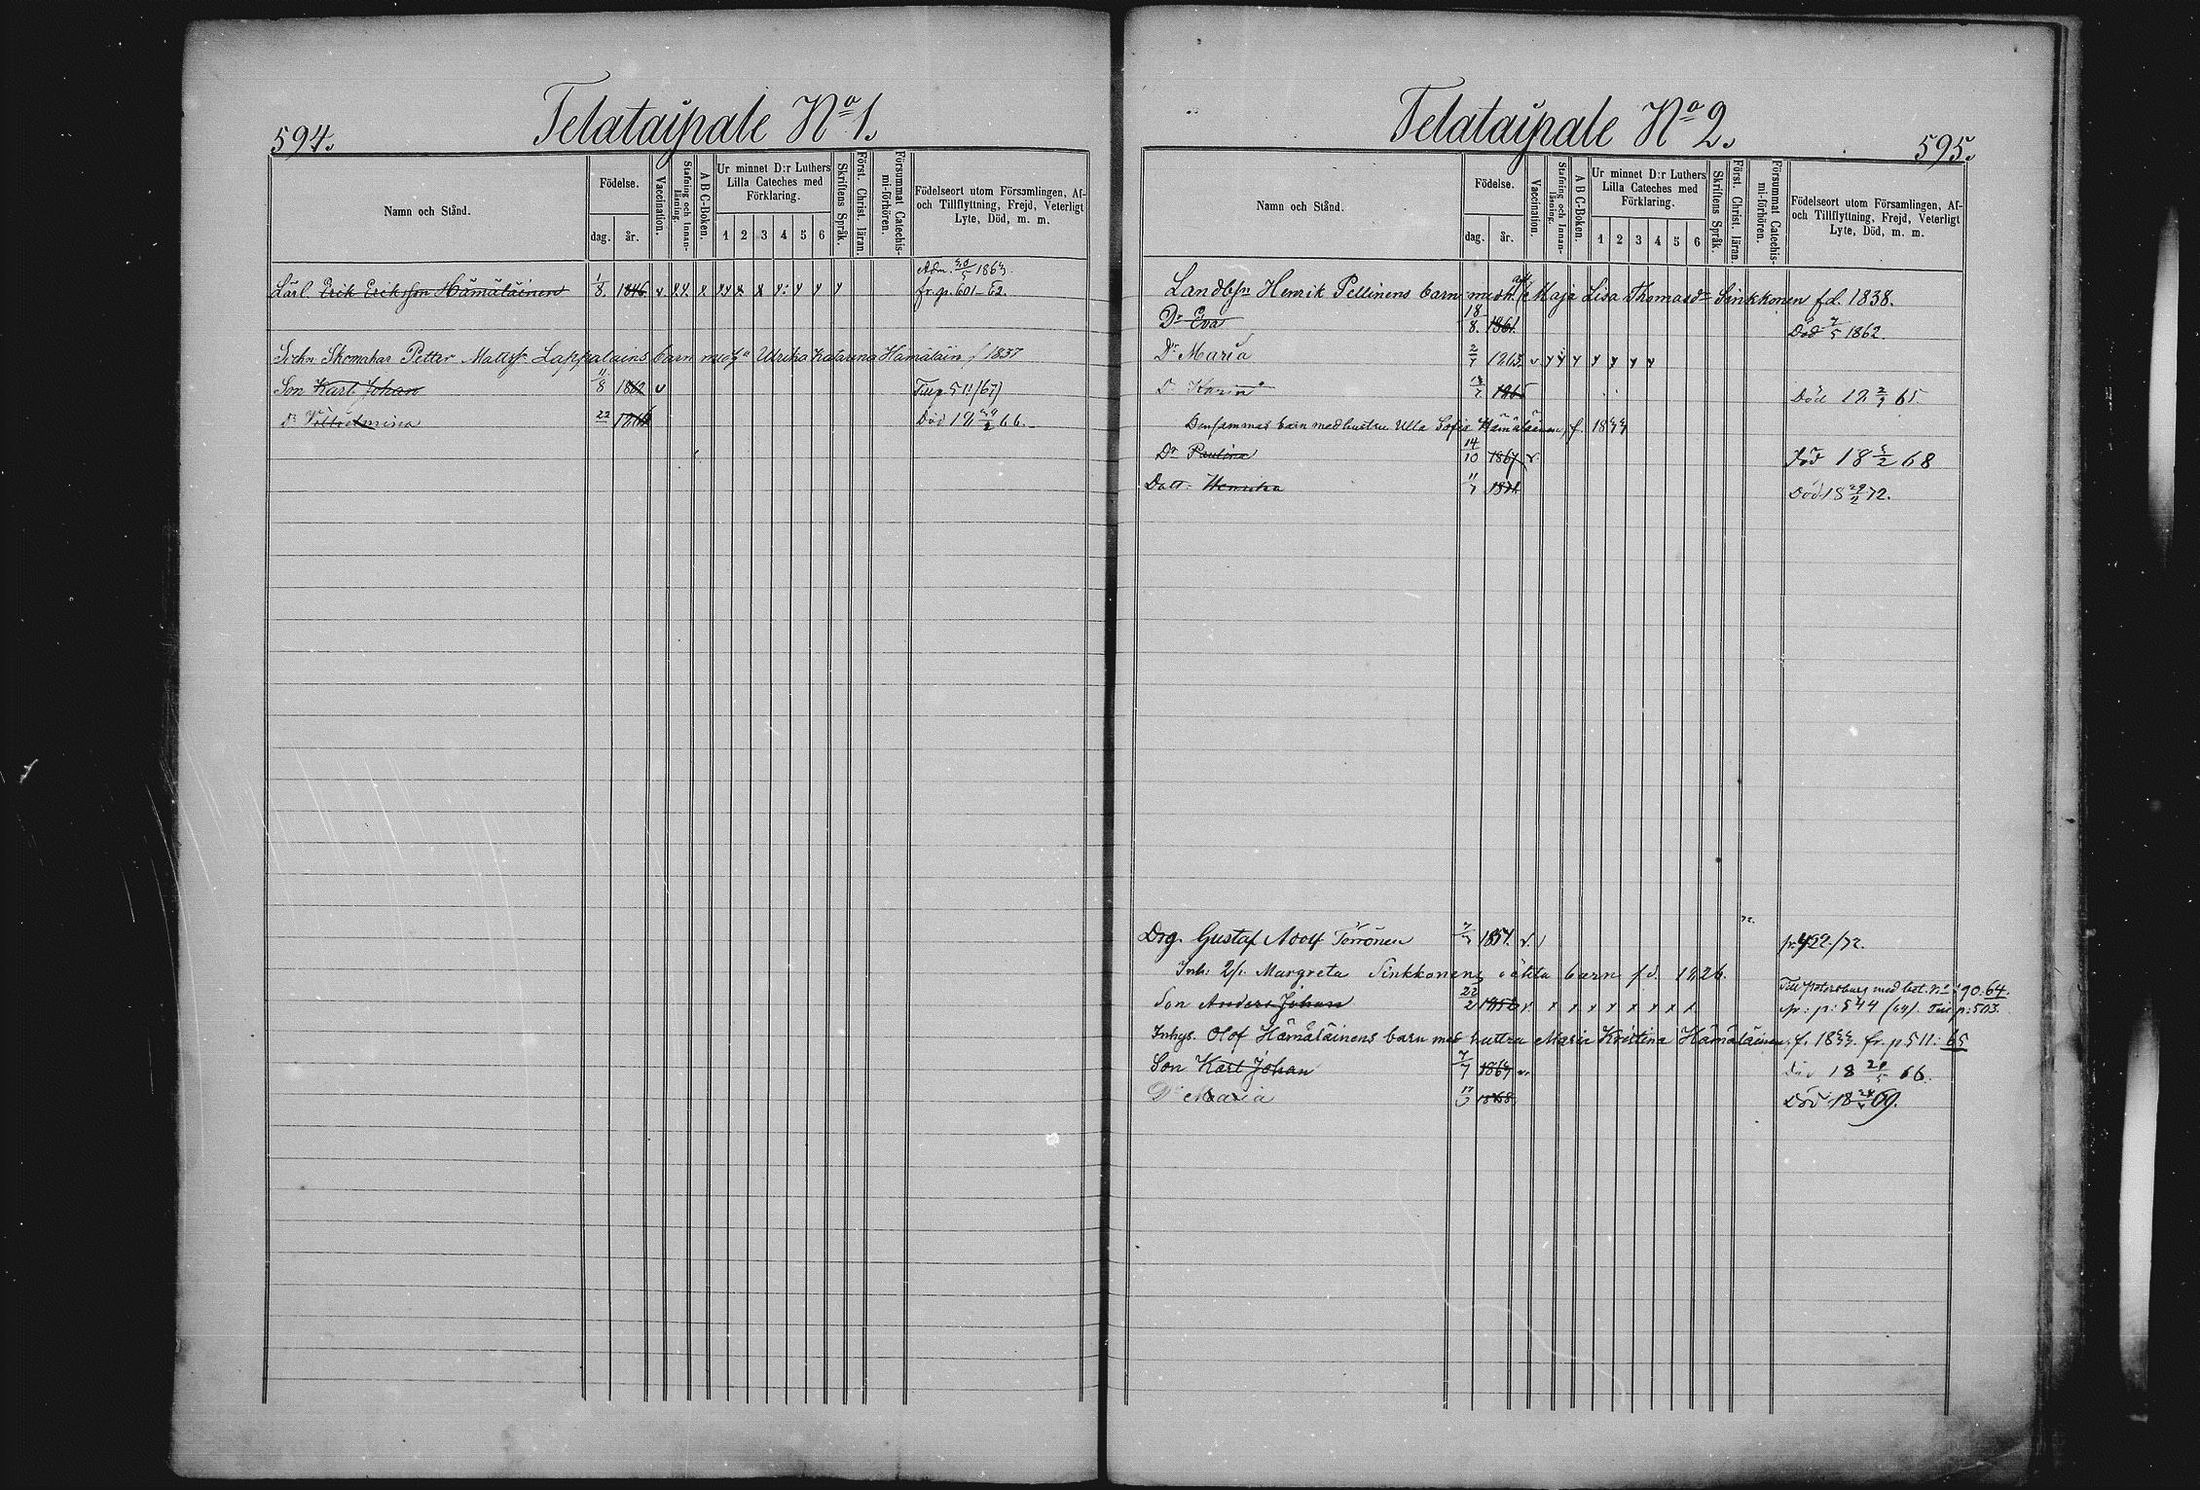 594.
Telataipale No 1.
Namn och Stånd.
Födelse.
dag.
år.
Vaccination.
Stafning och Innanläsning.
A B C-Boken.
Ur minnet D:r Luthers Lilla Cateches med Förklaring.
1 2 3 4 5 6
Skriftens Språk.
Först. Christ. läran.
Försummat Catechismi-förhören.
Födelseort utom Församlingen, Af- och Tillflyttning, Frejd, Veterligt Lyte, Död, m. m.
Adm. 30/5 1863.
Lärl. Erik Eriksson Hämäläinen 1/8. 1846 fr. p. 601-62.
Sockn Skomakar Petter Mattss. Lappalains barn med Ulrika Katarina Hämäläin f 1837
Son Karl Johan 11/8 1862 v
Död 18 66.
Telataipale No 2.
595.
Namn och Stånd.
Födelse.
dag.
år.
Vaccination.
Stafning och Innanläsning.
A B C-Boken.
Ur minnet D:r Luthers Lilla Cateches med Förklaring.
1 2 3 4 5 6
Skriftens Språk.
Först. Christ. läran.
Försummat Catechismi-förhören.
Födelseort utom Församlingen, Af- och Tillflyttning, Frejd, Veterligt Lyte, Död, m. m.
Landbn Henrik Pellinens barn med h. Maja Lisa Thomasdr Sinkkonen fd. 1838.
Dr Eva 18/8. 1861. Död 1862.
Dr Maria 1863.
Karin 1865 Död 18 65.
Densammas barn med hustru Ulla Sofia Hämäläinen, f. 1844
Dr Paulina 14/10 1867 v. död 18 68
Dott. Henrika 11/7 1871 Död 18 29/2 72.
Drg. Gustaf Adolf Törrönen 1854. fr. 422./72.
Inh: Margreta Sinkkonens oäkta barn fd. 1826.
Till Petersburg med bet. No 90. 64.
Son Anders Johan 22/2 1852 p: 544 (64). Till p: 503.
Inhys. Olof Hämäläinens barn med hustru Maria Kristina Hämäläinen, f. 1833. fr. p 511: 65
Son Karl Johan 1864 Död 18 29/5 66.
Dr Maria 1868 Död 18 69.